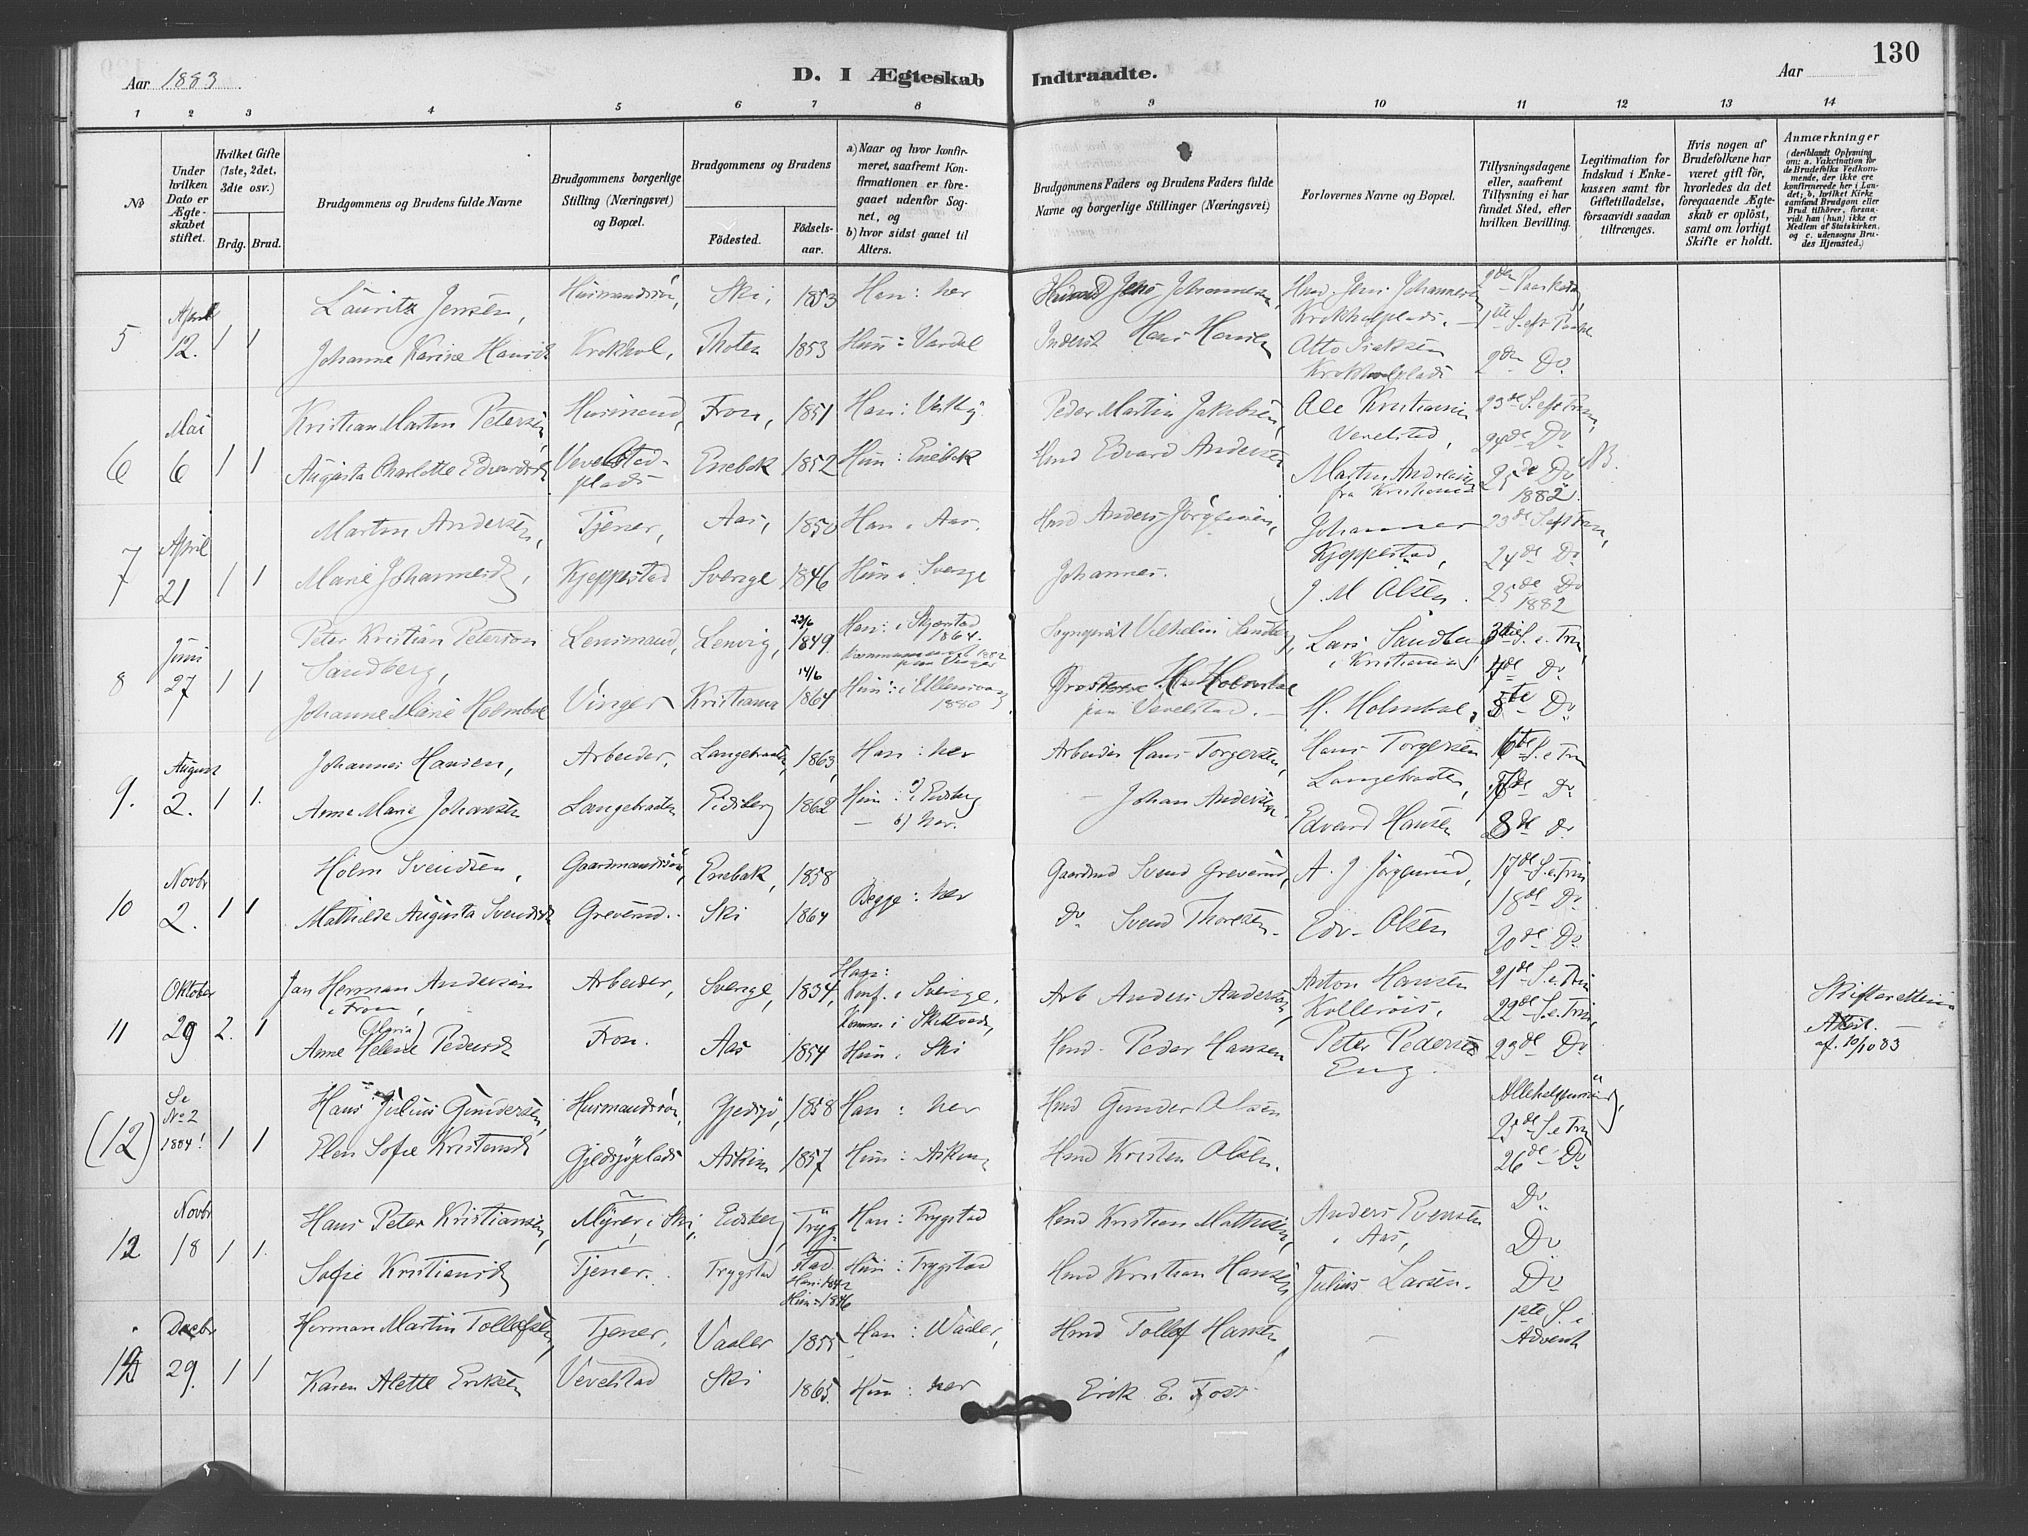 130
Aar 1883
D. I Ægteskab Indtraadte.
Aar
1 2 3 4 5 6 7 8 8 9 10 11 12 13 14
No
Under hvilken Dato er Ægteskabet stiftet.
Hvilket Gifte (1ste, 2det, 3die osv.)
Brdg. Brud.
Brudgommens og Brudens fulde Navne
Brudgommens borgerlige Stilling (Næringsvei) og Bopæl.
Brudgommens og Brudens
Fødested.
Fødselsaar.
a) Naar og hvor konfirmeret, saafremt Konfirmationen er foregaaet udenfor Sognet, og
b) hvor sidst gaaet til Alters.
Brudgommens Faders og Brudens Faders fulde Navne og borgerlige Stillinger (Næringsvei)
Forlovernes Navne og Bopæl.
Tillysningsdagene eller, saafremt Tillysning ei har fundet Sted, efter hvilken Bevilling.
Legitimation for Indskud i Enkekassen samt for Giftetilladelse, forsaavidt saadan tiltrænges.
Hvis nogen af Brudefolkene har været gift før, hvorledes da det foregaaende Ægteskab er opløst, samt om lovligt Skifte er holdt.
Anmærkninger
(deriblandt Oplysning om: a. Vakcination for de Brudefolks Vedkommende, der ikke ere konfirmerede her i Landet; b. hvilket Kirkesamfund Brudgom eller Brud tilhører, forsaavidt han (hun) ikke er Medlem af Statskirken, og c. udensogns Brudes Hjemsted.)
5 April 12. 1 1
Lauritz Jensen, Husmandssön, Ski, 1853 Han: her
Johanne Karine Hansd. Krokhol, Thoten 1853 Hun: Vardal
Jens Johannesen,
Inderst Hans Hansen
Hmd. Jens Johannesen
Krokholplads. –
Otto Isaksen
Krokholplads
2den Paaskedag,
1ste S. eft Paaske
2den Do
6 Mai 6 1 1
Kristian Martin Petersen, Husmand, Fron, 1851 Han: Vestby
Augusta Charlotte Edvardsd. Vevelstadplads Enebak 1852 Hun: Enebak
Peder Martin Jakobsen,
Hmd Edvard Andersen
Ole Kristiansen
Vevelstad,
Martin Andresen
fra Kristiania
23de S. eft Trin,
24de Do
25de Do
1882.
NB.
7 April 21 1 1
Martin Andersen, Tjener, Aas, 1850 Han i Aas.
Marie Johannesd, Kjeppestad Sverige 1846 Hun i Sverige
Hmd Anders Jörgensen,
Johannes.
Johannes
Kjeppestad,
J. M Olsen.
23de S. eft Trin,
24de Do
25de Do
1882
8 Juni 27 1 1
Peter Kristian Peterson Sandberg, Lensmand, Lenvig, 22/6 1849. Han: i Skjerstad 1864.
Johanne Marie Holmboe Vinger Kristiania 14/6 1864 Hun: i Ullensvang 1880
Sogneprest Vilhelm Sandberg,
H. Holmboe
paa Vevelstad. –
Lars Sandberg
i Kristiania,
H. Holmboe,
3die S. e. Trin,
4de Do
5te Do
9. August 2. 1 1.
Johannes Hansen, Arbeider, Langebraaten, 1863, Han: her
Anne Marie Johansen Langebraaten Eidsberg 1862 Hun: a) i Eidsberg
– b) her.
Arbeider Hans Torgersen,
– Johan Andersen.
Hans Torgersen
Langebraaten,
Edvard Hansen
6te S. e Trin
7de Do
8de Do
10 Novbr 2. 1 1
Holm Svendsen, Gaardmandssön, Enebak, 1858
Mathilde Augusta Svendsd. Greverud. Ski 1864
Begge: her
Gaardmd Svend Greverud,
Do Svend Thoresen.
A. J. Jörgensrud,
Edv. Olsen
17de S. e. Trin
18de Do
20de Do
11 Oktober 29 2. 1
Jan Herman Andersen i Fron, Arbeider, Sverige, 1834, Han: Konf. i Sverige. Komm. i Skitved,
(Maria)
Anne Helene Pedersd. Fron. Aas 1854 Hun i Ski
Arb Anders Anderson,
Hmd. Peder Hansen
Anton Hansen
Kolleröis,
Peter Pedersen
Eng.
21de S. e Trin
22de S. e Trin,
23de Do
Skifteattest
af. 10/10 83
(12) Se No 2 1884! 1 1
Hans Julius Gundersen, Husmandssön, Gjedsjö, 1858 Han: her
Elen Sofie Kristensd. Gjedsjöplads Askim 1857 Hun: Askim
Hmd Gunder Olsen
Hmd Kristen Olsen.
Allehelgensönd,
25de S. e Trin
26de Do
12 Novbr 18 1 1.
Hans Peter Kristiansen, Myrer, i Ski, Eidsberg, Trygstad Han: Trygstad
Sofie Kristiansd. Tjener. Trygstad Han: 1842 Hun: Trygstad
Hun: 1846
Hmd Kristian Mathisen,
Hmd Kristian Hansen
Anders Evensen
i Aas,
Julius Larsen.
Do
Do
Do
13 Decbr 29. 1 1
Herman Martin Tollefsen, Tjener, Vaaler 1855 Han: Vaaler,
Karen Alette Eriksen Vevelstad Ski 1865. Hun: her
Hmd Tollef Hansen,
Erik E. Foss
–
1ste S. i
Advent